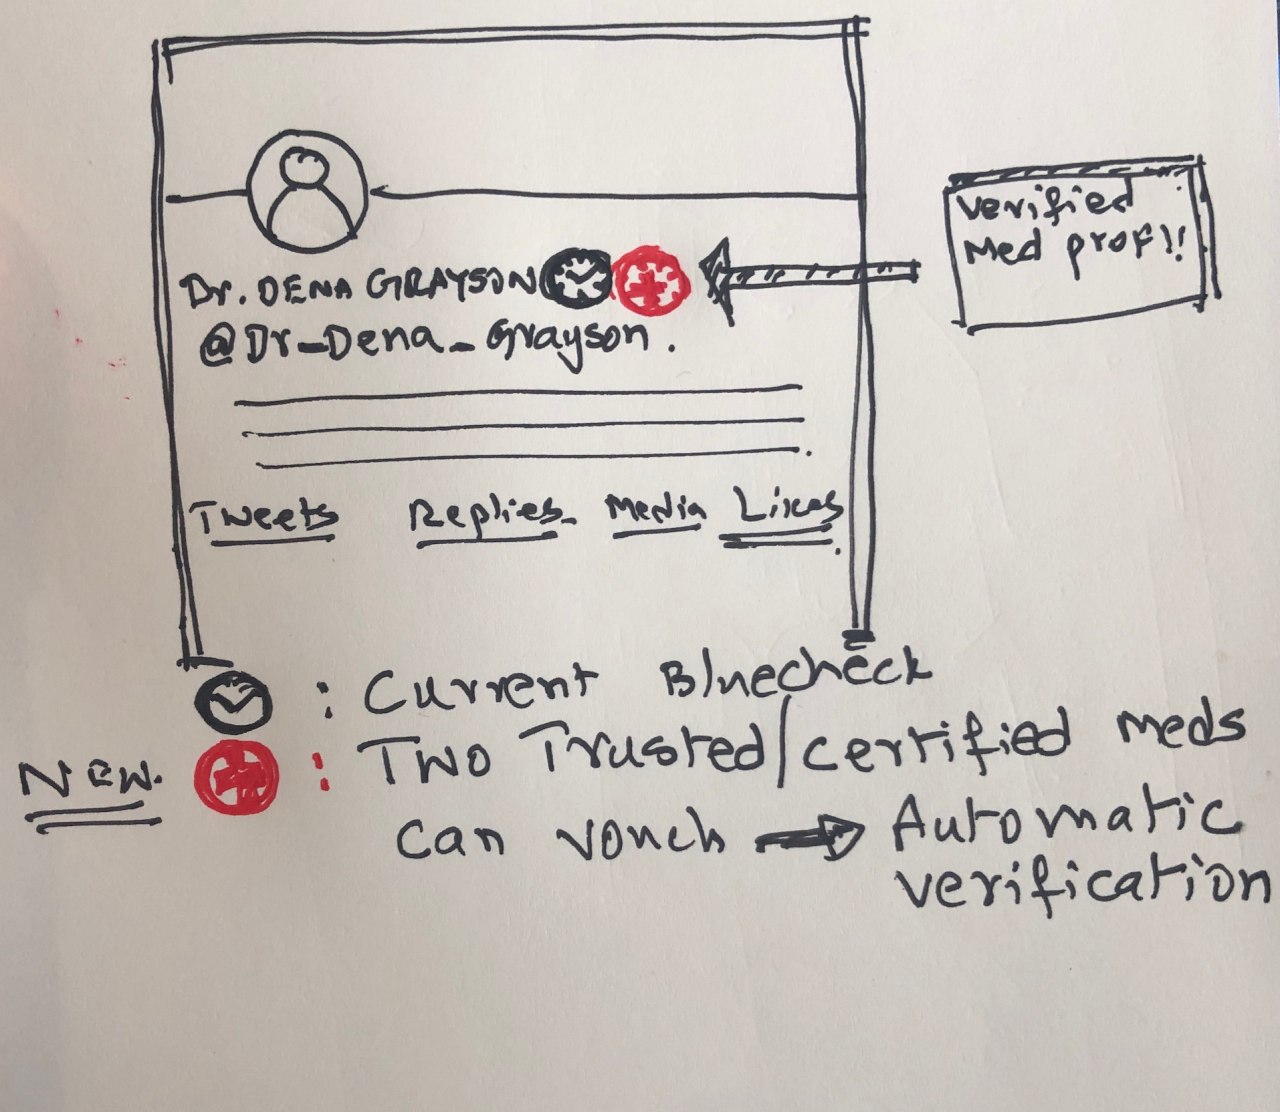 Verified
Med prof!!
Dr. DENA GRAYSON
@Dr_Dena_Grayson.
Tweets Replies Media Likes
: Current Bluecheck
NEW. : Two Trusted/certified meds
can vouch → Automatic
verification